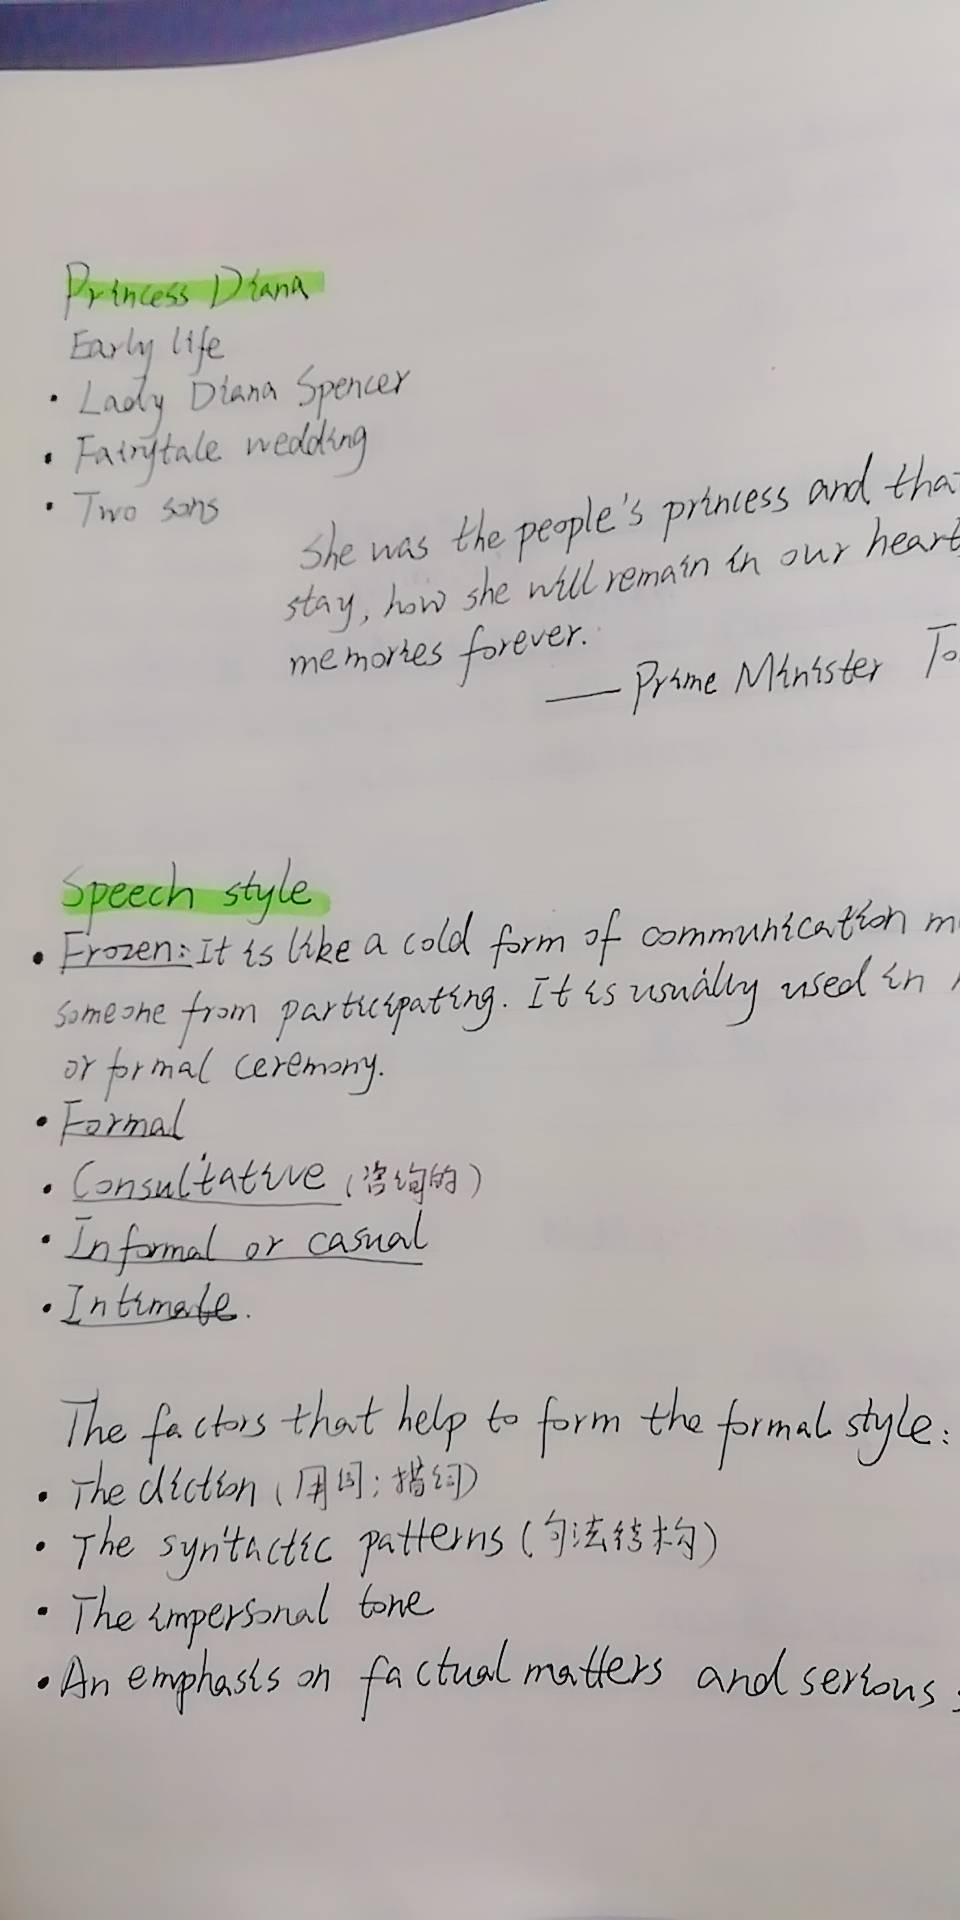 Princess Diana
Early life
• Lady Diana Spencer
• Fairytale wedding
• Two sons
She was the people's princess and
stay, how she will remain in our
memories forever.
—— Prime Minister
Speech style
• Frozen: It is like a cold form of communication
someone from participating. It is usually used in
or formal ceremony.
• Formal
• Consultative (咨询的)
• Informal or casual
• Intimate.
The factors that help to form the formal style:
• The diction (用词; 措词)
• The syntactic patterns (句法结构)
• The impersonal tone
• An emphasis on factual matters and serious